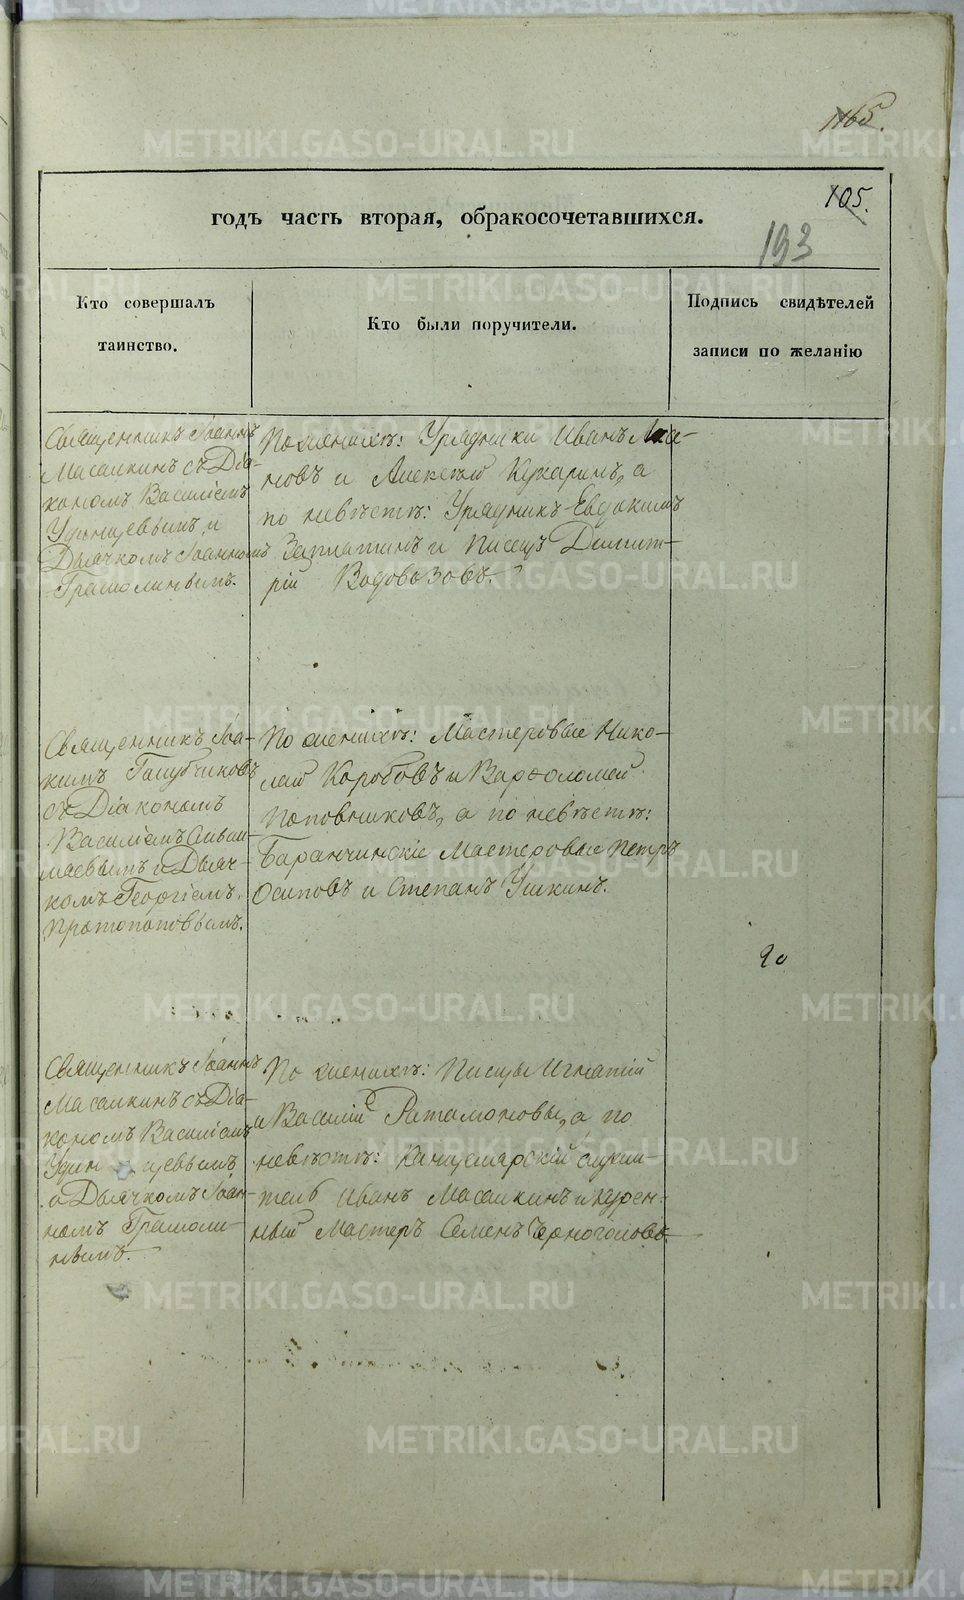 1165.
105.
годъ часть вторая, обракосочетавшихся.
193
Кто совершалъ
таинство.
Кто были поручители.
Подпись свидѣтелей
записи по желанію
Священникъ Іоаннъ
Масалкинъ съ Діа-
кономъ Василіемъ
Удинцевымъ, и
Дьячкомъ Іоанномъ
Грамолинымъ.
По женихѣ: Урядники Иванъ
новъ и Алексѣй Кухаринъ, а
по невѣстѣ: Урядникъ Евдокимъ
Заплатинъ и писецъ Димит-
рій Водовозовъ.
Священникъ Іоа-
кимъ Голубчиковъ
съ Діакономъ
Василіемъ
и Дьяч-
комъ Георгіемъ
Протопоповымъ.
По женихѣ: Мастеровые Нико-
лай Коробовъ и Варѳоломей
Поповниковъ, а по невѣстѣ:
Баранчинскіе Мастеровые Петръ
Осиповъ и Степанъ Ушкинъ.
20
Священникъ Іоаннъ
Масалкинъ съ Діа-
кономъ Василіемъ
Удинцевымъ
и Дьячкомъ Іоан-
номъ Грамоли-
нымъ.
По женихѣ: Писцы Игнатій
и Василій Ратамоновы, а по
невѣстѣ: Канцелярскій служи-
тель Иванъ Масалкинъ и курен-
ный Мастеръ Семенъ Черноголовъ.
METRIKI.GASO-URAL.RU